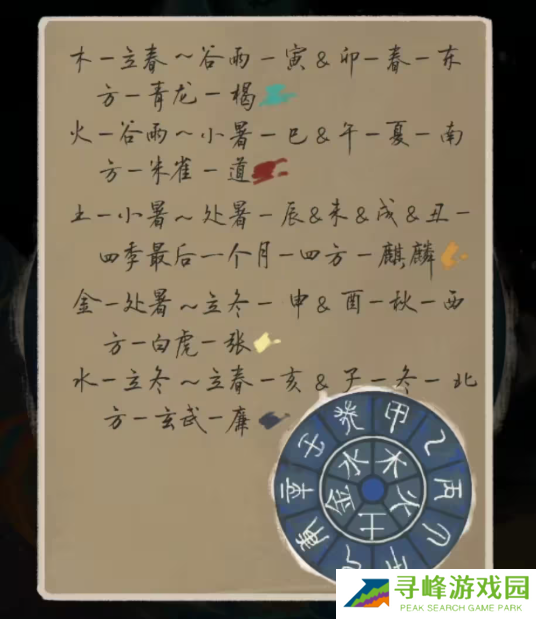 木一立春~谷雨一寅&卯一春一东
方一青龙一楬
火一谷雨~小暑一巳&午一夏一南
方一朱雀一道
土一小暑~处暑一辰&未&戌&丑一
四季最后一个月一四方一麒麟
金一处暑~立冬一申&酉一秋一西
方一白虎一张
水一立冬~立春一亥&子一冬一北
方一玄武一廉
癸 甲 乙 丙
壬 辛
水 木 火 土 金
寻峰游戏园
PEAK SEARCH GAME PARK